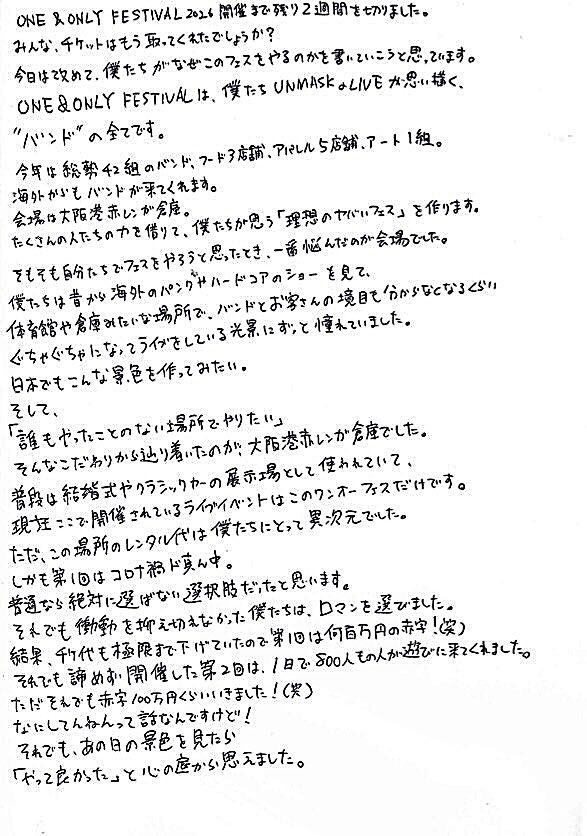 ONE & ONLY FESTIVAL 2026 開催まで残り2週間を切りました。
みんな、チケットはもう取ってくれたでしょうか?
今日は改めて、僕たちがなぜこのフェスをやるのかを書いていこうと思っています。
ONE&ONLY FESTIVALは、僕たちUNMASK aLIVEが思い描く、
"バンド"の全てです。
今年は総勢42組のバンド、フード3店舗、アパレル5店舗、アート1組。
海外からもバンドが来てくれます。
会場は大阪港赤レンガ倉庫。
たくさんの人たちの力を借りて、僕たちが思う「理想のヤバいフェス」を作ります。
そもそも自分たちでフェスをやろうと思ったとき、一番悩んだのが会場でした。
僕たちは昔から海外のパンクやハードコアのショーを見て、
体育館や倉庫みたいな場所で、バンドとお客さんの境目も分からなくなるくらい
ぐちゃぐちゃになってライブをしている光景にずっと憧れていました。
日本でもこんな景色を作ってみたい。
そして、
「誰もやったことのない場所でやりたい」
そんなこだわりから辿り着いたのが、大阪港赤レンガ倉庫でした。
普段は結婚式やクラシックカーの展示場として使われていて、
現在ここで開催されているライブイベントはこのワンオーフェスだけです。
ただ、この場所のレンタル代は僕たちにとって異次元でした。
しかも第1回はコロナ禍ド真ん中。
普通なら絶対に選ばない選択肢だったと思います。
それでも衝動を抑え切れなかった僕たちは、ロマンを選びました。
結果、チケ代も極限まで下げていたので第1回は何百万円の赤字!(笑)
それでも諦めず開催した第2回は、1日で800人もの人が遊びに来てくれました。
ただそれでも赤字100万円くらいいきました!(笑)
なにしてんねんって話なんですけど!
それでも、あの日の景色を見たら
「やって良かった」と心の底から思えました。